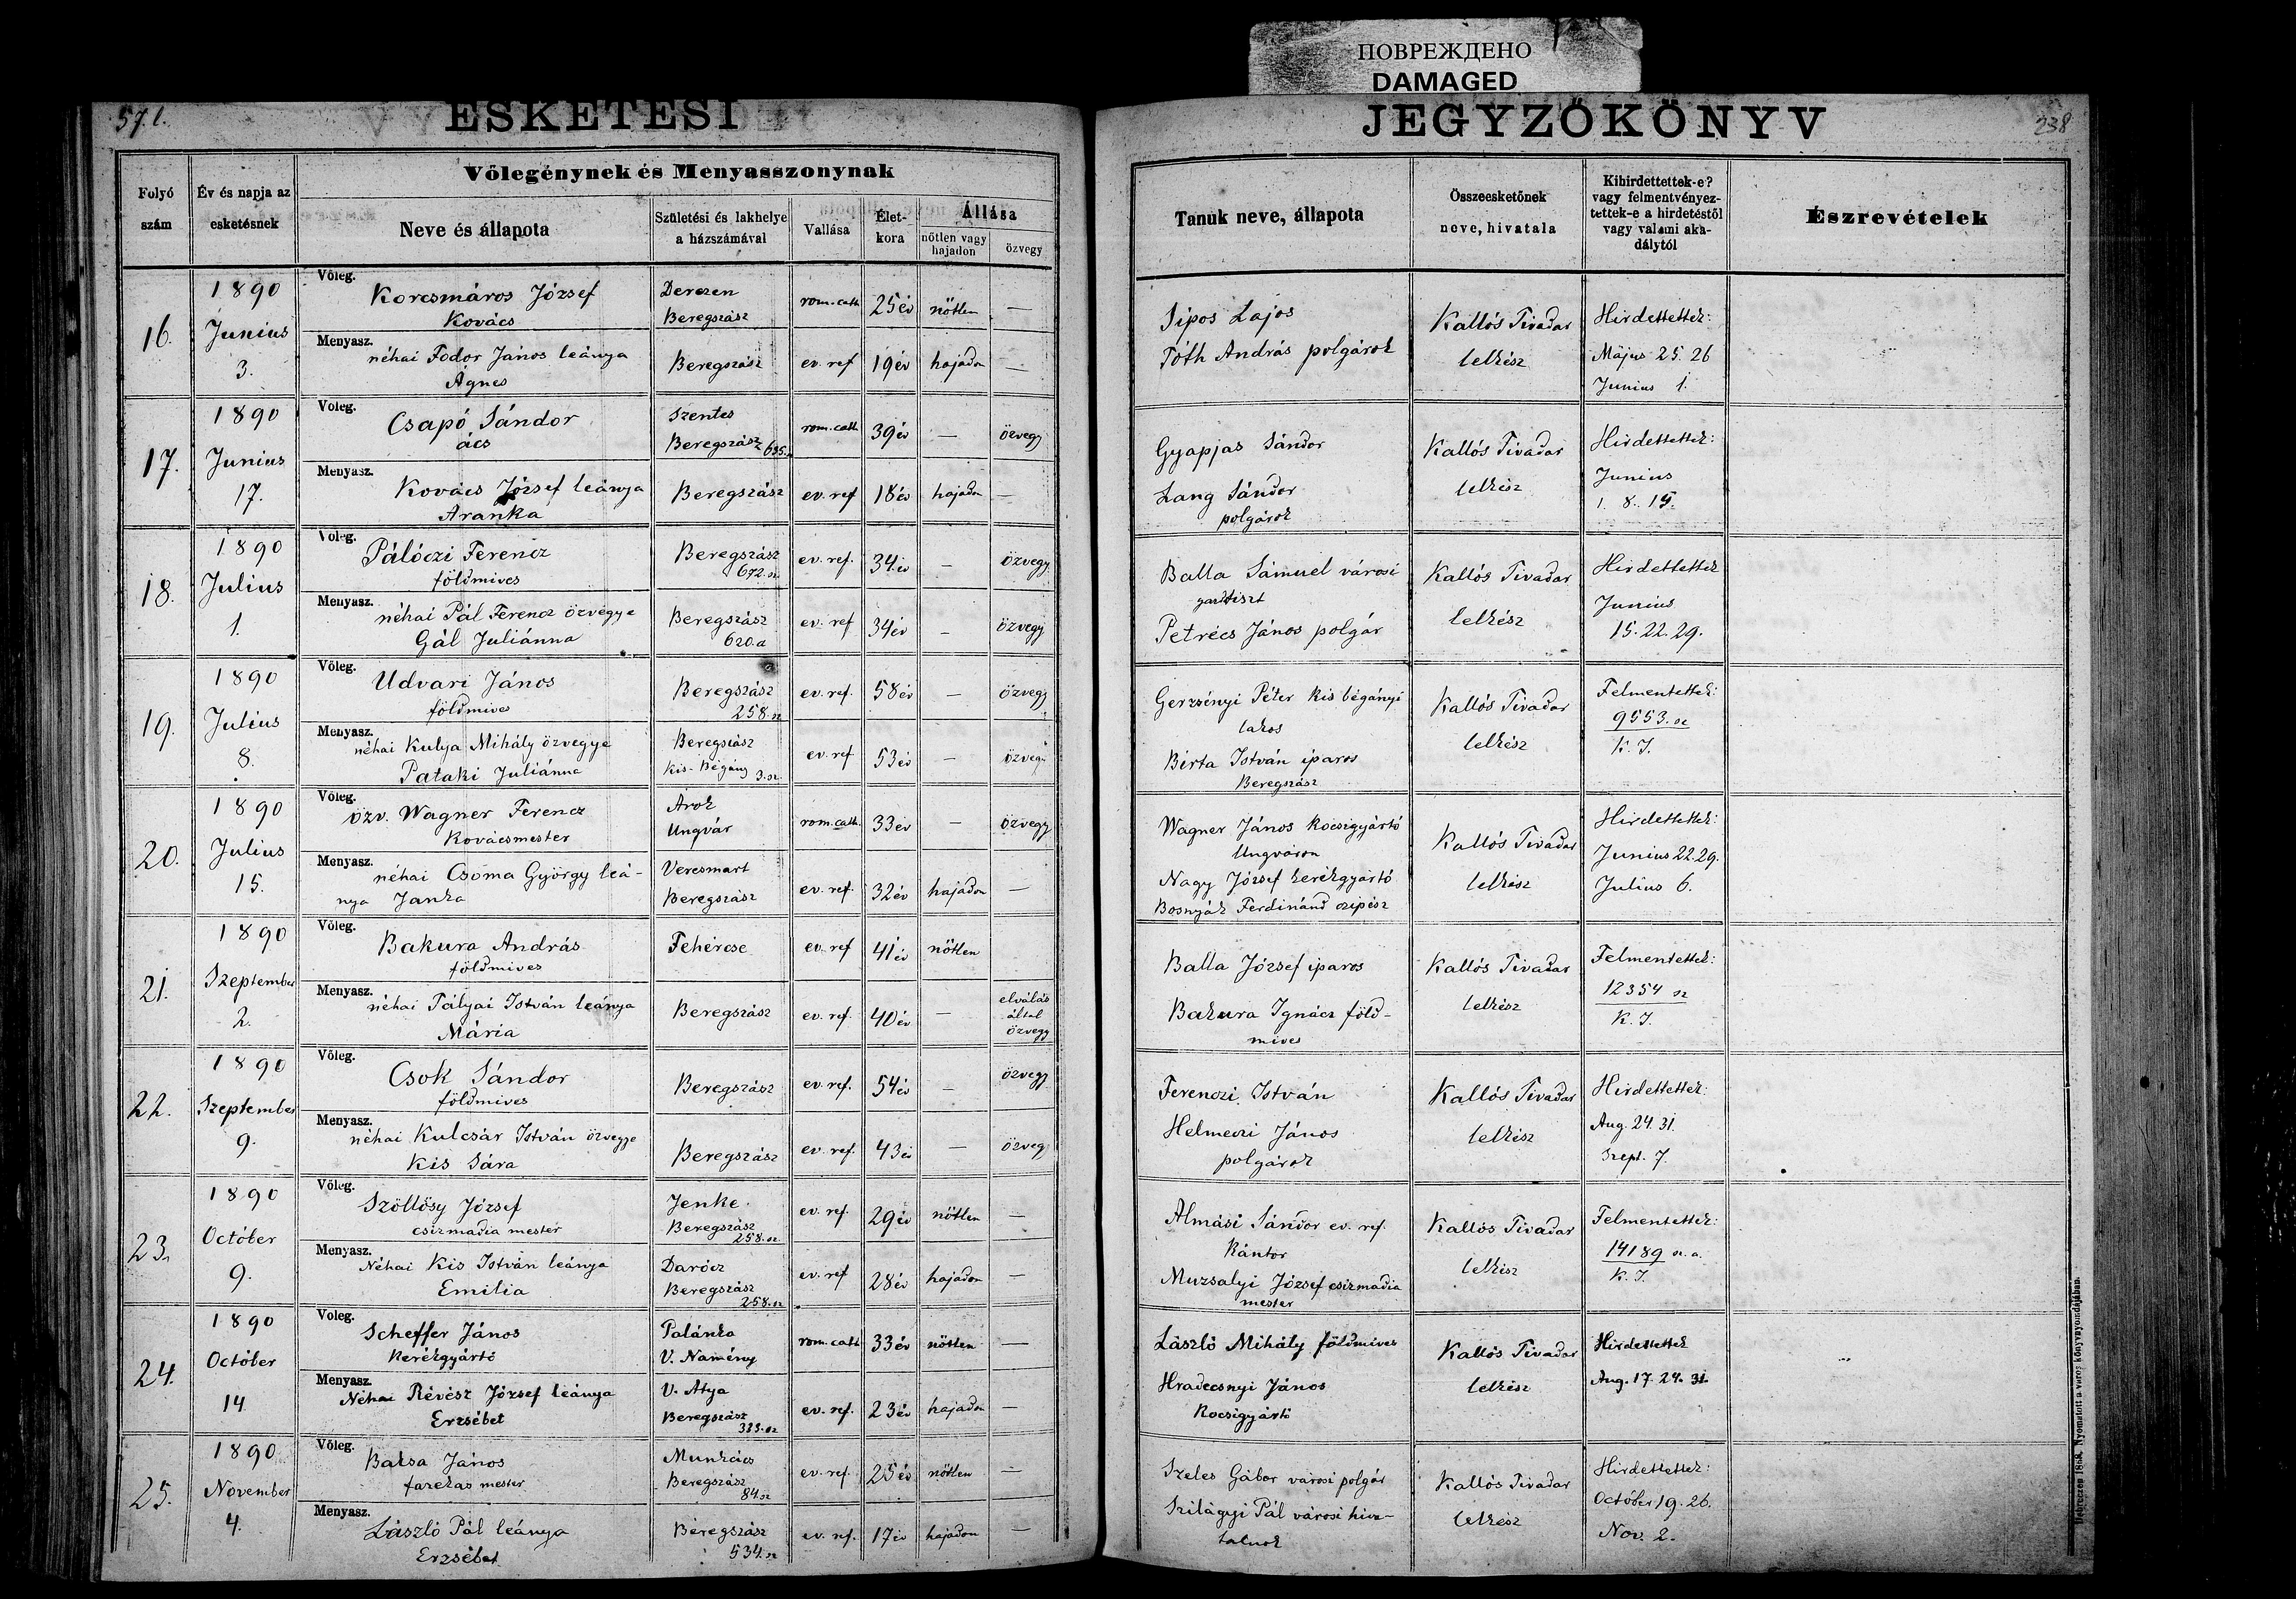 ПОВРЕЖДЕНО
DAMAGED
57. l.
ESKETÉSI
JEGYZŐKÖNYV
238
Folyó
szám
Év és napja az
esketésnek
Vőlegénynek és Menyasszonynak
Neve és állapota
Születési és lakhelye
a házszámával
Vallása
Élet-
kora
Állása
nőtlen vagy
hajadon
özvegy
Tanuk neve, állapota
Összeesketőnek
neve, hivatala
Kihirdettettek-e?
vagy felmentvényez-
tettek-e a hirdetéstől
vagy valami aka-
dálytól
Észrevételek
16.
1890
Junius
3.
Vőleg.
Korcsmáros József
Kovács
Derczen
Beregszász
rom. cath
25 év
nőtlen
—
Menyasz.
néhai Fodor János leánya
Ágnes
Beregszász
ev. ref
19 év
hajadon
—
Sipos Lajos
Tóth András polgárok
Kallós Tivadar
lelkész
Hirdettettek:
Május 25. 26
Junius 1.
17.
1890
Junius
17.
Vőleg.
Csapó Sándor
ács
Szentes
Beregszász 635.
rom. cath
39 év
—
özvegy
Menyasz.
Kovács József leánya
Aranka
Beregszász
ev. ref
18 év
hajadon
—
Gyapjas Sándor
Lang Sándor
polgárok
Kallós Tivadar
lelkész
Hirdettettek:
Junius
1. 8. 15.
18.
1890
Julius
1.
Vőleg.
Pálóczi Ferencz
földmives
Beregszász
672. sz
ev. ref.
34 év
—
özvegy
Menyasz.
néhai Pál Ferencz özvegye
Gál Juliánna
Beregszász
620. a
ev. ref
34 év
—
özvegy
Balla Sámuel városi
Petrécs János polgár
Kallós Tivadar
lelkész
Hirdettettek
Junius
15. 22. 29.
19.
1890
Julius
8.
Vőleg.
Udvari János
földmives
Beregszász
258. sz
ev. ref.
58 év
—
özvegy
Menyasz.
néhai Kulya Mihály özvegye
Pataki Juliánna
Beregszász
Kis-Bégány 3. sz
ev. ref
53 év
—
özvegy
Gerzsényi Péter Kis bégányi
lakos
Birta István iparos
Beregszász
Kallós Tivadar
lelkész
Felmentettek:
9553. sz
K. I.
20.
1890
Julius
15.
Vőleg.
özv. Wagner Ferencz
Kovácsmester
Arok
Ungvár
rom. cath.
33 év
—
özvegy
Menyasz.
néhai Csoma György leá-
nya Janka
Veresmart
Beregszász
ev. ref.
32 év
hajadon
—
Wagner János Kocsigyártó
Ungváron
Nagy József kerékgyártó
Bosnyák Ferdinánd czipész
Kallós Tivadar
lelkész
Hirdettettek:
Junius 22. 29.
Julius 6.
21.
1890
Szeptember
2.
Vőleg.
Bakura András
földmives
Fehércse
ev. ref
41 év
nőtlen
Menyasz.
néhai Pályai István leánya
Mária
Beregszász
ev. ref.
40 év
—
elválás
által
özvegy
Balla József iparos
Bakura Ignácz föld-
mives
Kallós Tivadar
lelkész
Felmentettek:
12354 sz
K. I.
22.
1890
Szeptember
9.
Vőleg.
Csok Sándor
földmives
Beregszász
ev. ref.
54 év
—
özvegy
Menyasz.
néhai Kulcsár István özvegye
Kis Sára
Beregszász
ev. ref.
43 év
—
özvegy
Ferenczi István
Helmeczi János
polgárok
Kallós Tivadar
lelkész
Hirdettettek:
Aug. 24. 31.
Szept. 7.
23.
1890
Október
9.
Vőleg.
Szöllősy József
csizmadia mester
Jenke
Beregszász
258. sz
ev. ref.
29 év
nőtlen
—
Menyasz.
Néhai Kis István leánya
Emilia
Darócz
Beregszász
258. sz
ev. ref
28 év
hajadon
—
Almási Sándor ev. ref.
Kántor
Muzsalyi József csizmadia
mester
Kallós Tivadar
lelkész
Felmentettek:
14189 sz. a.
K. I.
24.
1890
Október
14
Vőleg.
Scheffer János
Kerékgyártó
Palánka
V. Namény
rom. cath
33 év
nőtlen
—
Menyasz.
Néhai Révész József leánya
Erzsébet
V. Atya
Beregszász
333. sz
ev. ref.
23 év
hajadon
—
László Mihály földmives
Hradecsnyi János
Kocsigyártó
Kallós Tivadar
lelkész
Hirdettettek
Aug. 17. 24. 31.
25.
1890
November
4.
Vőleg.
Baksa János
fazekas mester
Munkács
Beregszász
84. sz
ev. ref.
25 év
nőtlen
—
Menyasz.
László Pál leánya
Erzsébet
Beregszász
534. sz
ev. ref.
17 év
hajadon
—
Szeles Gábor városi polgár
Szilágyi Pál városi hiva-
talnok
Kallós Tivadar
lelkész
Hirdettettek:
Október 19. 26.
Nov. 2.
Debreczen 1868. Nyomatott a város könyvnyomdájában.